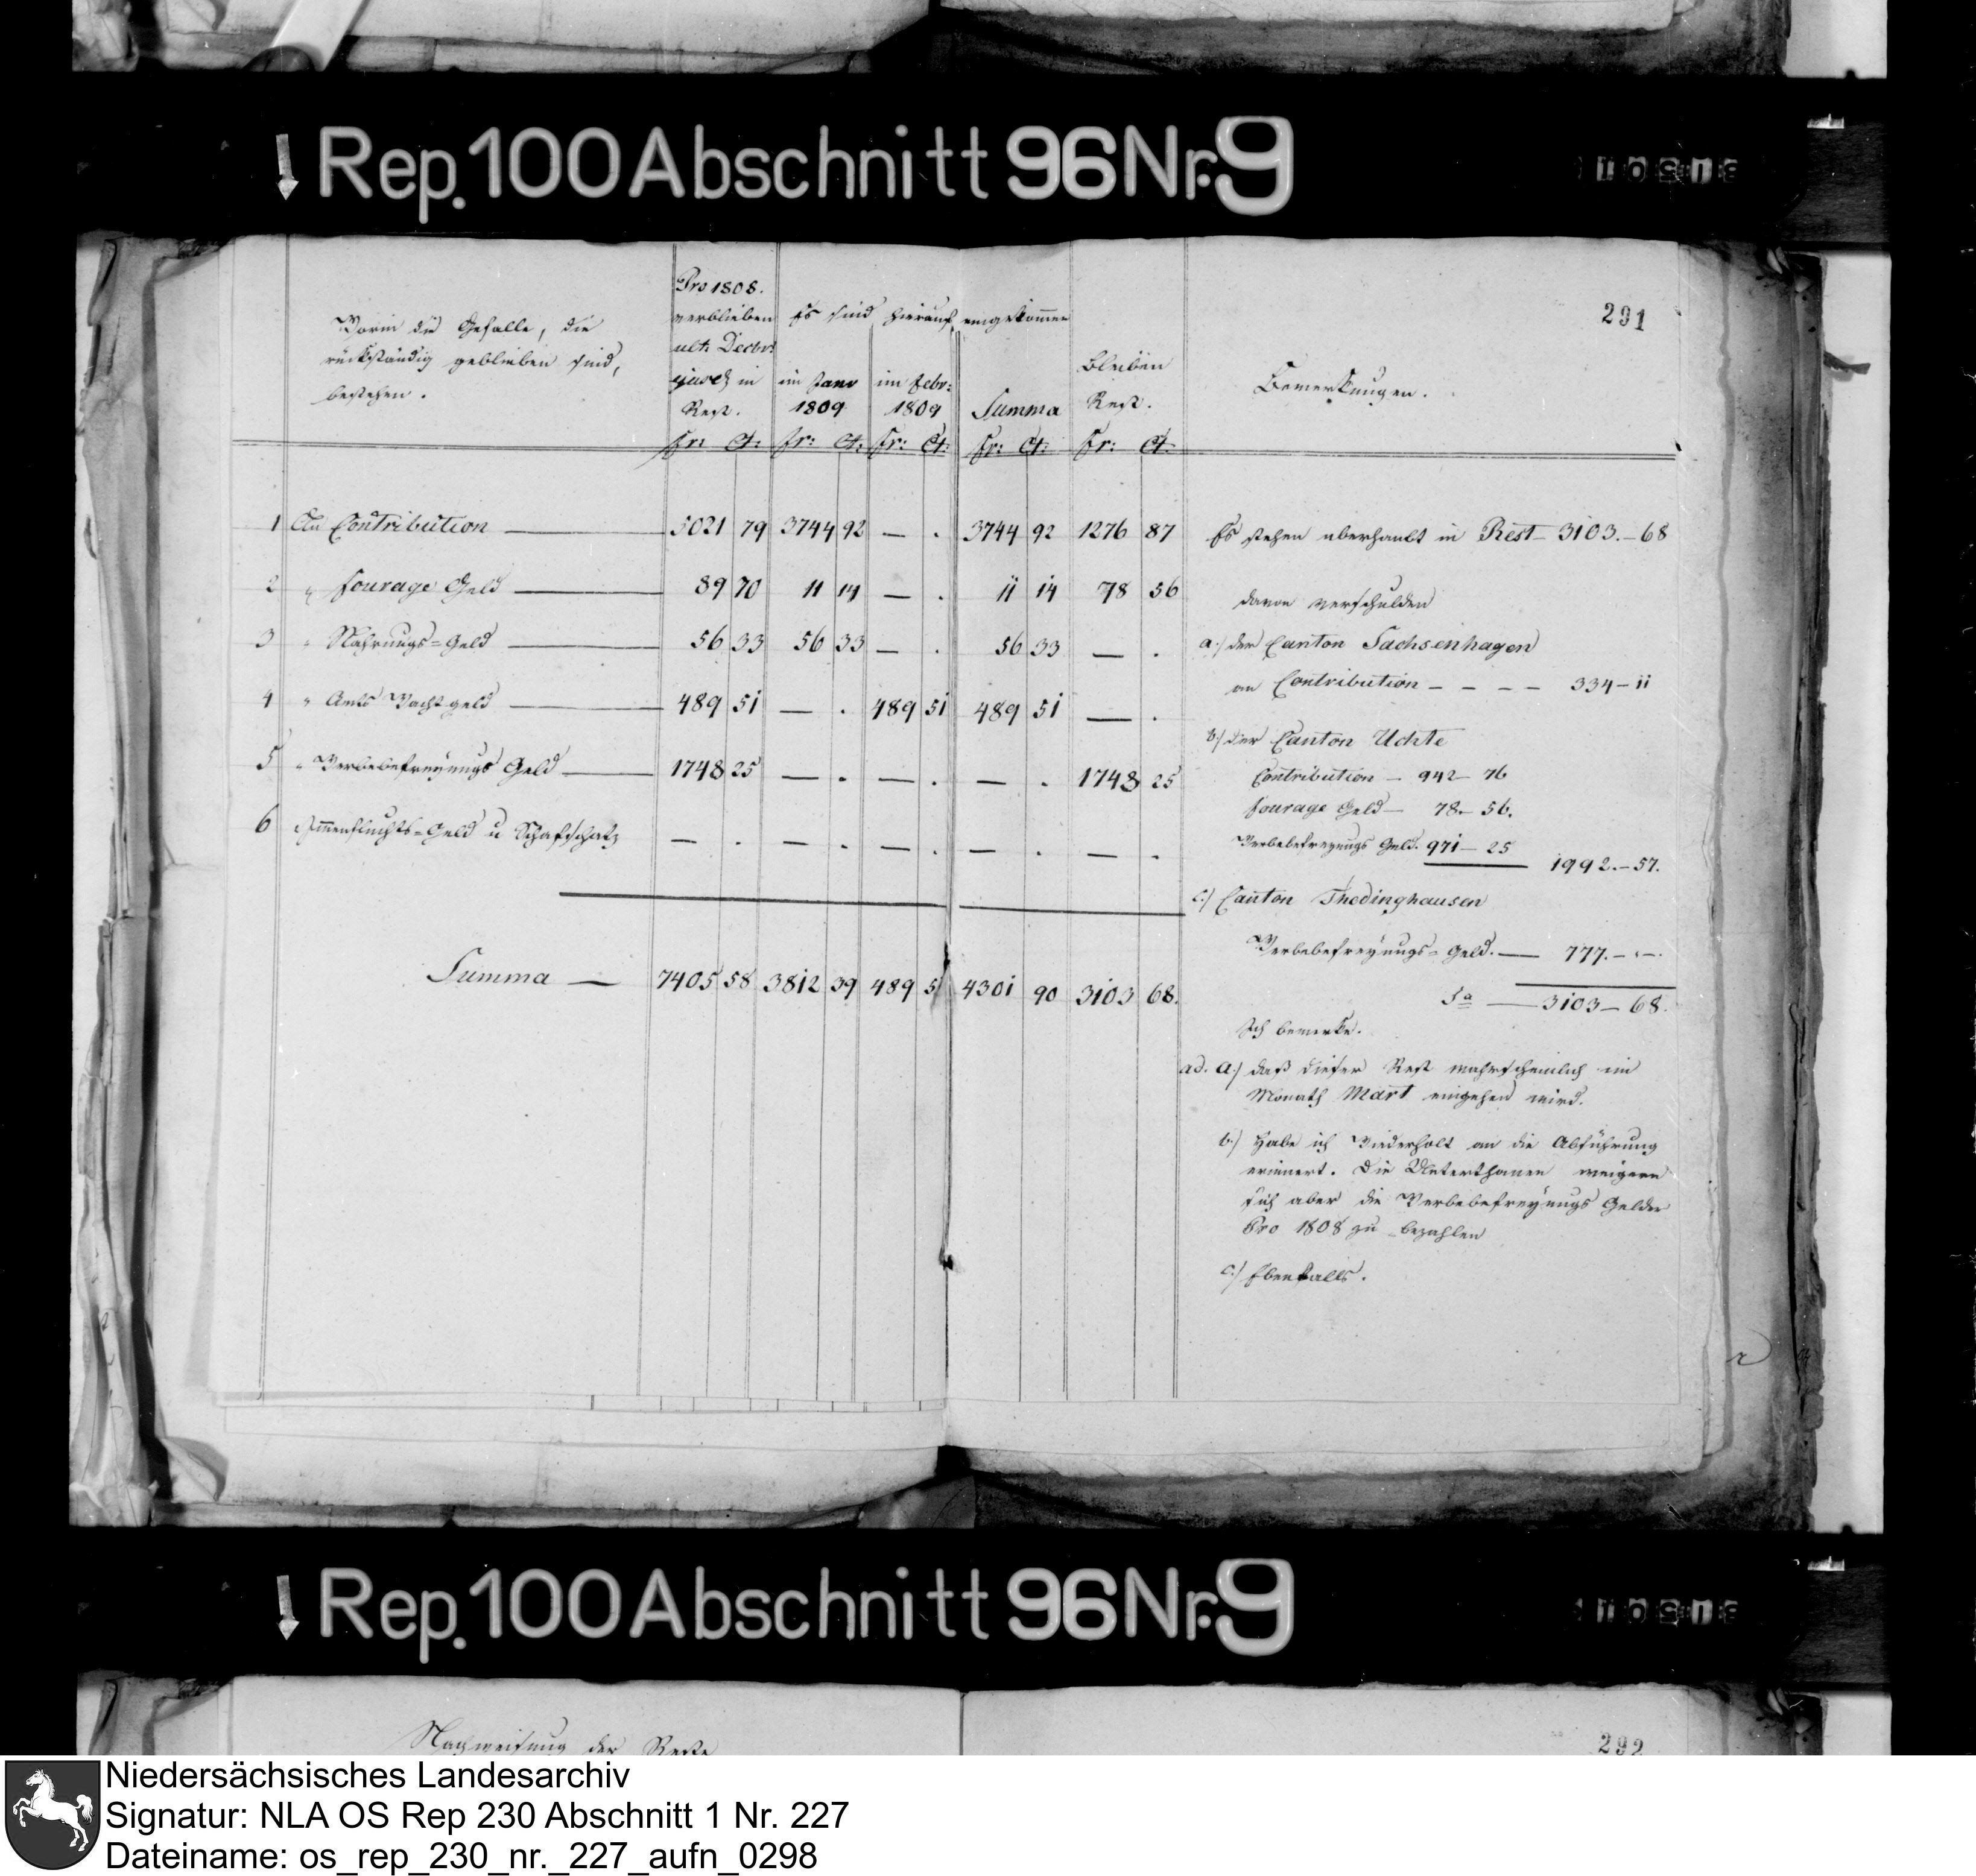 Rep. 100 Abschnitt 96 Nr. 9
291
Worin die Gefälle, die
rückständig geblieben sind,
bestehen.
Pro 1808.
verblieben
ult. Decbr:
ejusd in
Rest.
Es sind hierauf eingekommen
im Janr
1809
im Febr:
1809
Summa
bleiben
Rest.
Bemerkungen.
Fr: Ct: Fr: Ct: Fr: Ct: Fr: Ct: Fr: Ct:
1 An Contribution — 5021 79 3744 92 — . 3744 92 1276 87
2 " Fourage Geld — 89 70 11 14 — . 11 14 78 56
3 " Nahrungs-Geld — 56 33 56 33 — . 56 33 — .
4 " Amts Wachtgeld — 489 51 — . 489 51 489 51 — .
5 " Werbebefreyungs Geld — 1748 25 — . — . — . 1748 25
6 Immenfluchts-Geld u Schafschatz — . — . — . — . — .
Summa — 7405 58 3812 39 489 51 4301 90 3103 68.
Es stehen überhaubt in Rest 3103.-68
davon verschulden
a:/ der Canton Sachsenhagen
an Contribution - - - - 334-11
b:/ der Canton Uchte
Contribution - 942-76
Fourage Geld - 78.-56.
Werbebefreyungs Geld. 971-25
1992.-57.
c:/ Canton Thedinghausen
Werbebefreyungs-Geld. — 777.- " -.
Sa — 3103-68.
Ich bemerke.
ad. a:/ daß dieser Rest wahrscheinlich im
Monath Mart eingehen wird.
b:/ Habe ich Wiederholt an die Abführung
erinnert. Die Unterthanen weigern
sich aber die Werbebefreyungs Gelder
Pro 1808 zu bezahlen
c:/ Ebenfalls.
Rep. 100 Abschnitt 96 Nr. 9
Nachweisung der Reste
292
Niedersächsisches Landesarchiv
Signatur: NLA OS Rep 230 Abschnitt 1 Nr. 227
Dateiname: os_rep_230_nr._227_aufn_0298